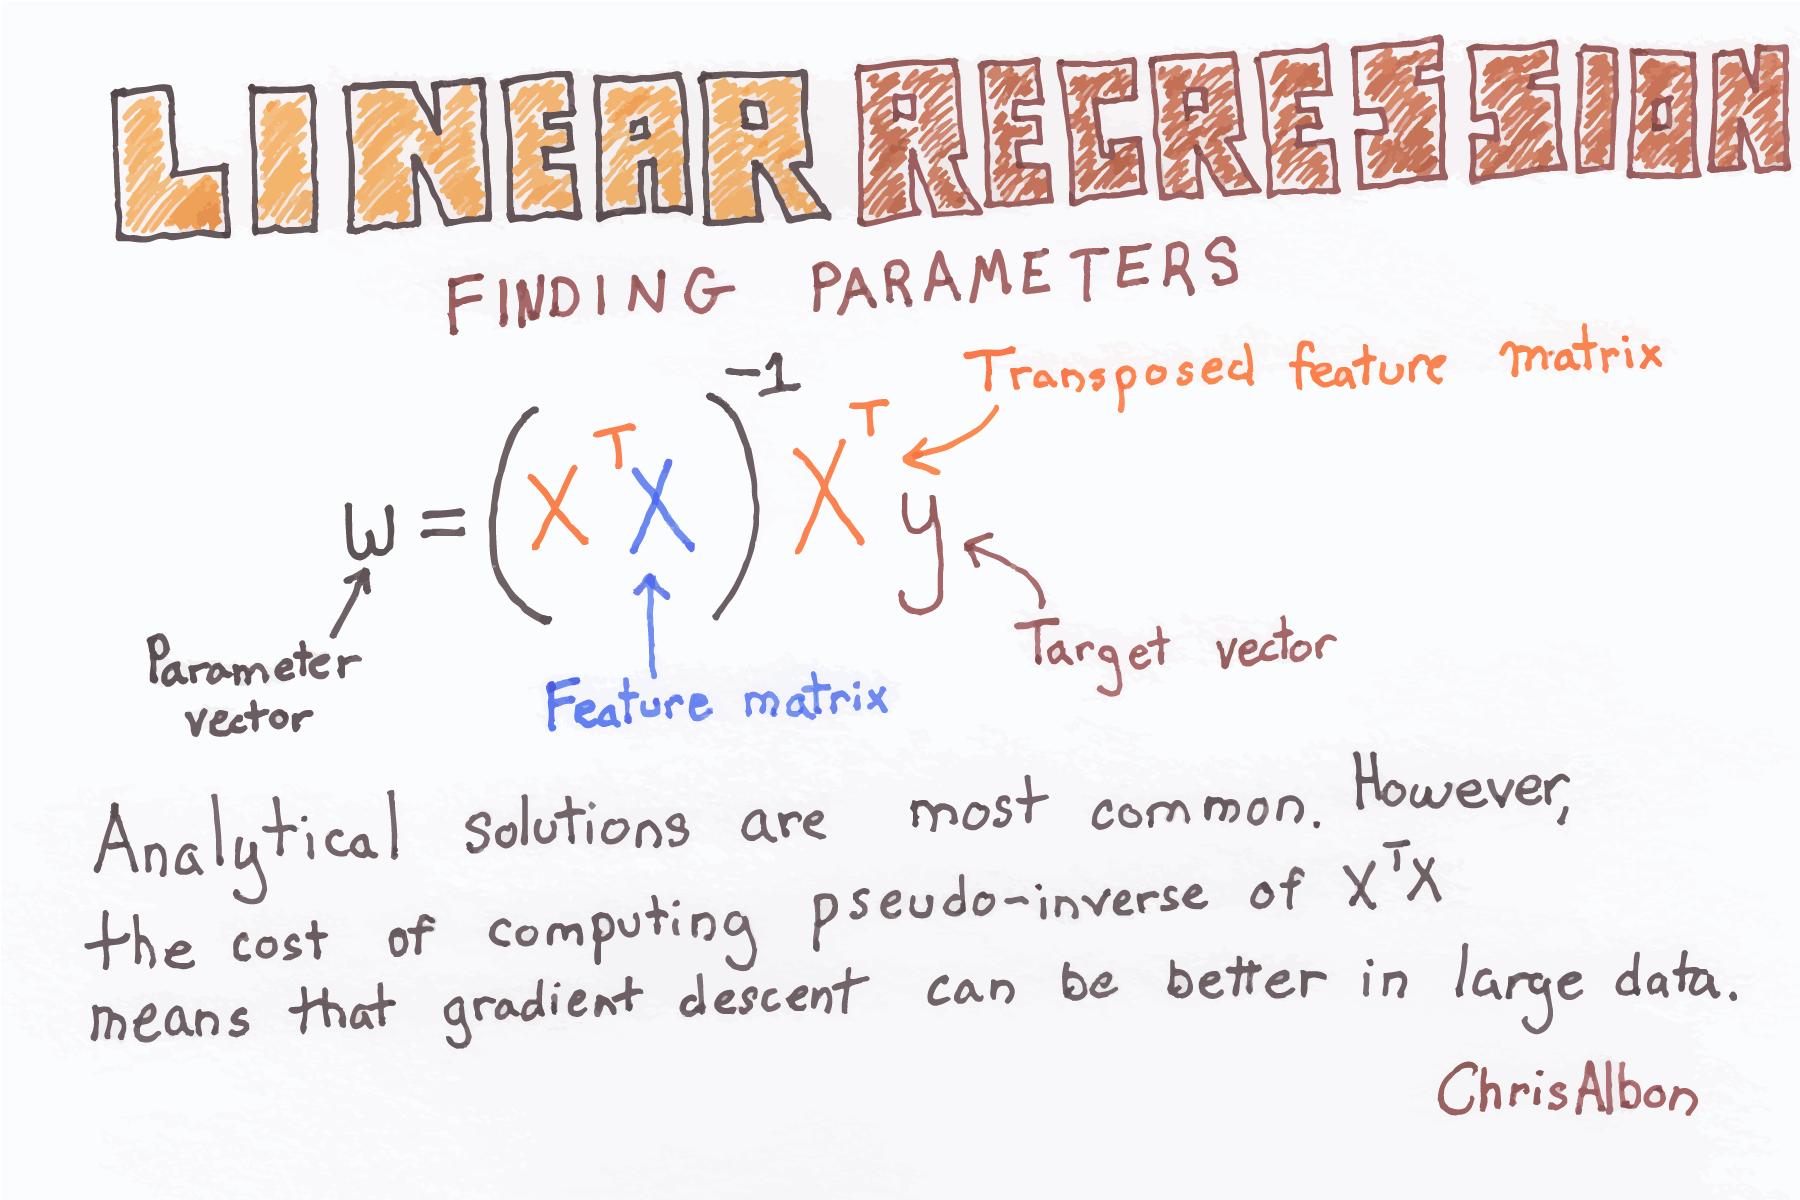 LINEAR REGRESSION
FINDING PARAMETERS
w = (XᵀX)⁻¹ Xᵀy
Transposed feature matrix
Parameter
vector
Feature matrix
Target vector
Analytical solutions are most common. However,
the cost of computing pseudo-inverse of XᵀX
means that gradient descent can be better in large data.
ChrisAlbon